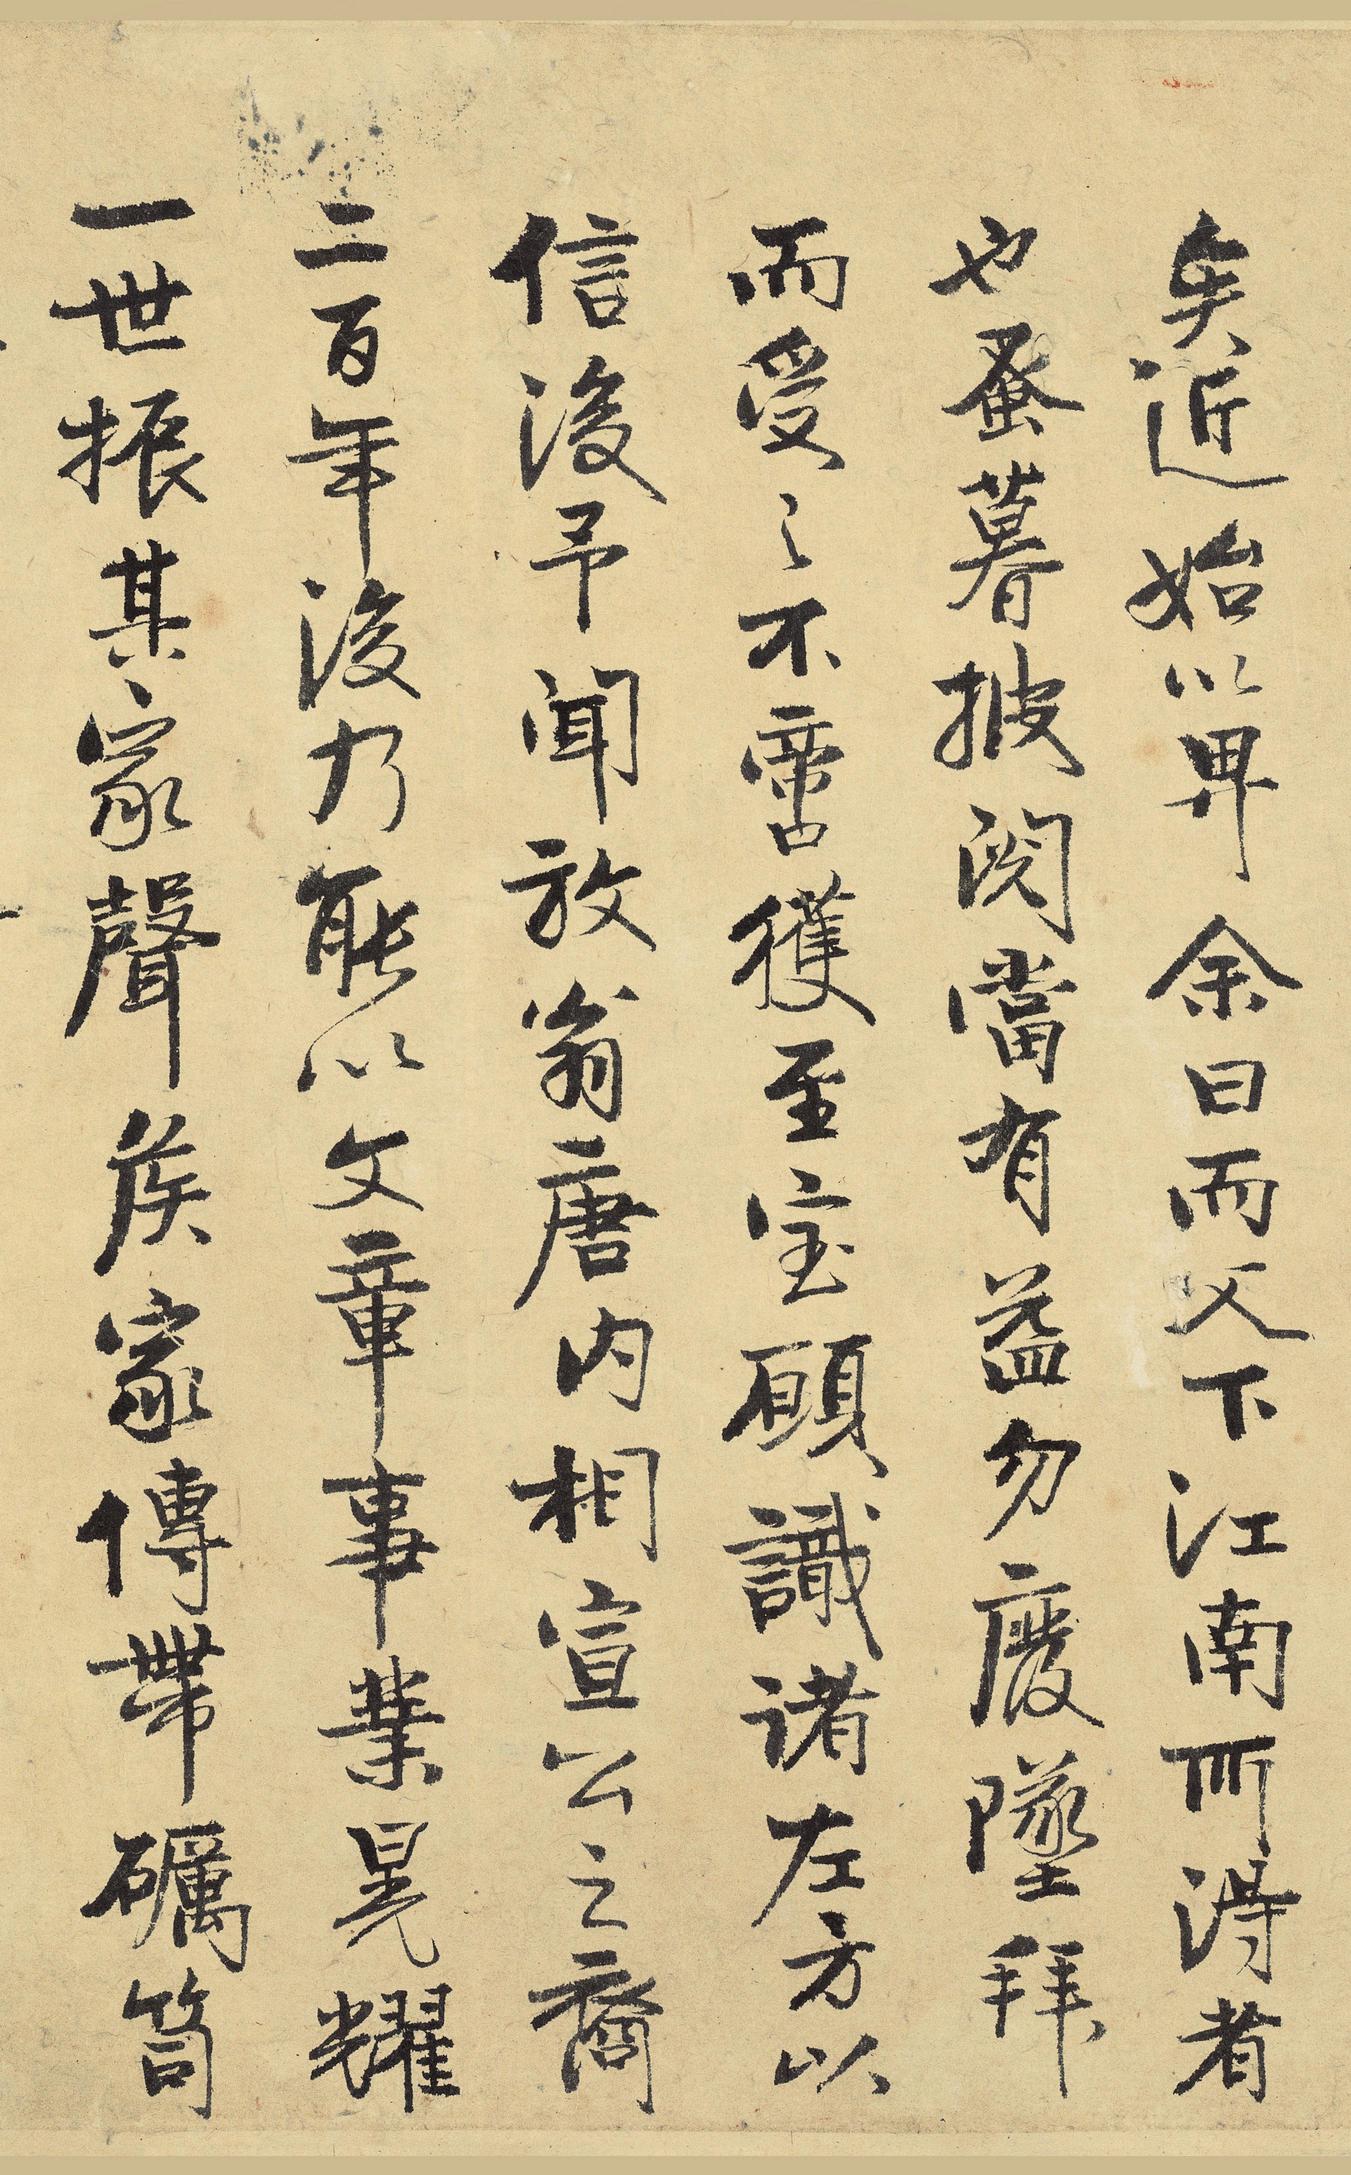 矣近始以畀余曰而父下江南所得者
也蚤暮披閱當有益勿廢墜拜
而受之不啻獲至宝願識諸左方以
信後予聞放翁唐内相宣公之裔
二百年後乃能以文章事業晃耀
一世振其家聲侯家傳帶礪笥